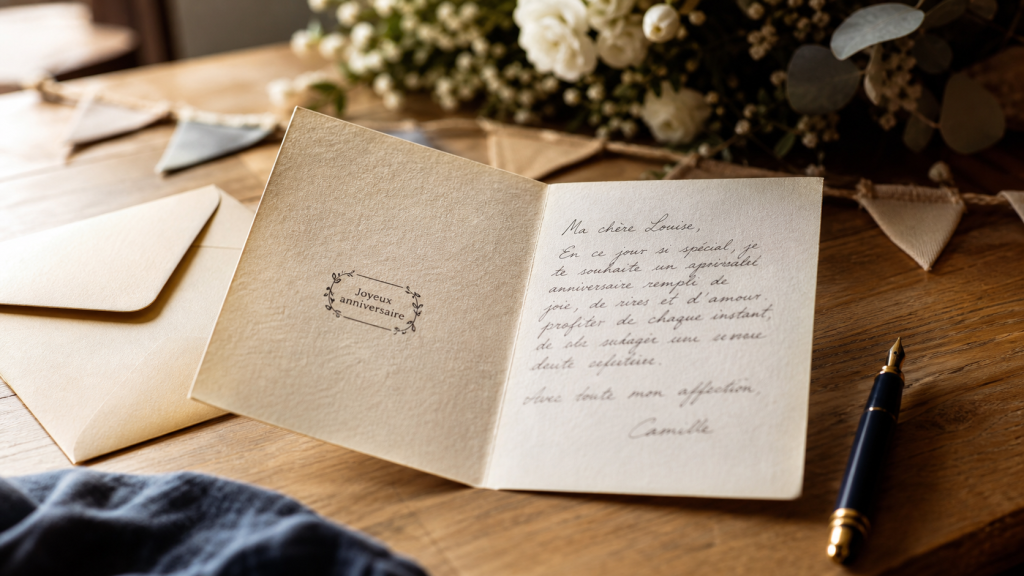 Joyeux
anniversaire
Ma chère Louise,
En ce jour si spécial, je
te souhaite un
anniversaire remple de
joie, de rires et d'amour.
profiter de chaque instant.
de
Avec toute mon affection,
Camille